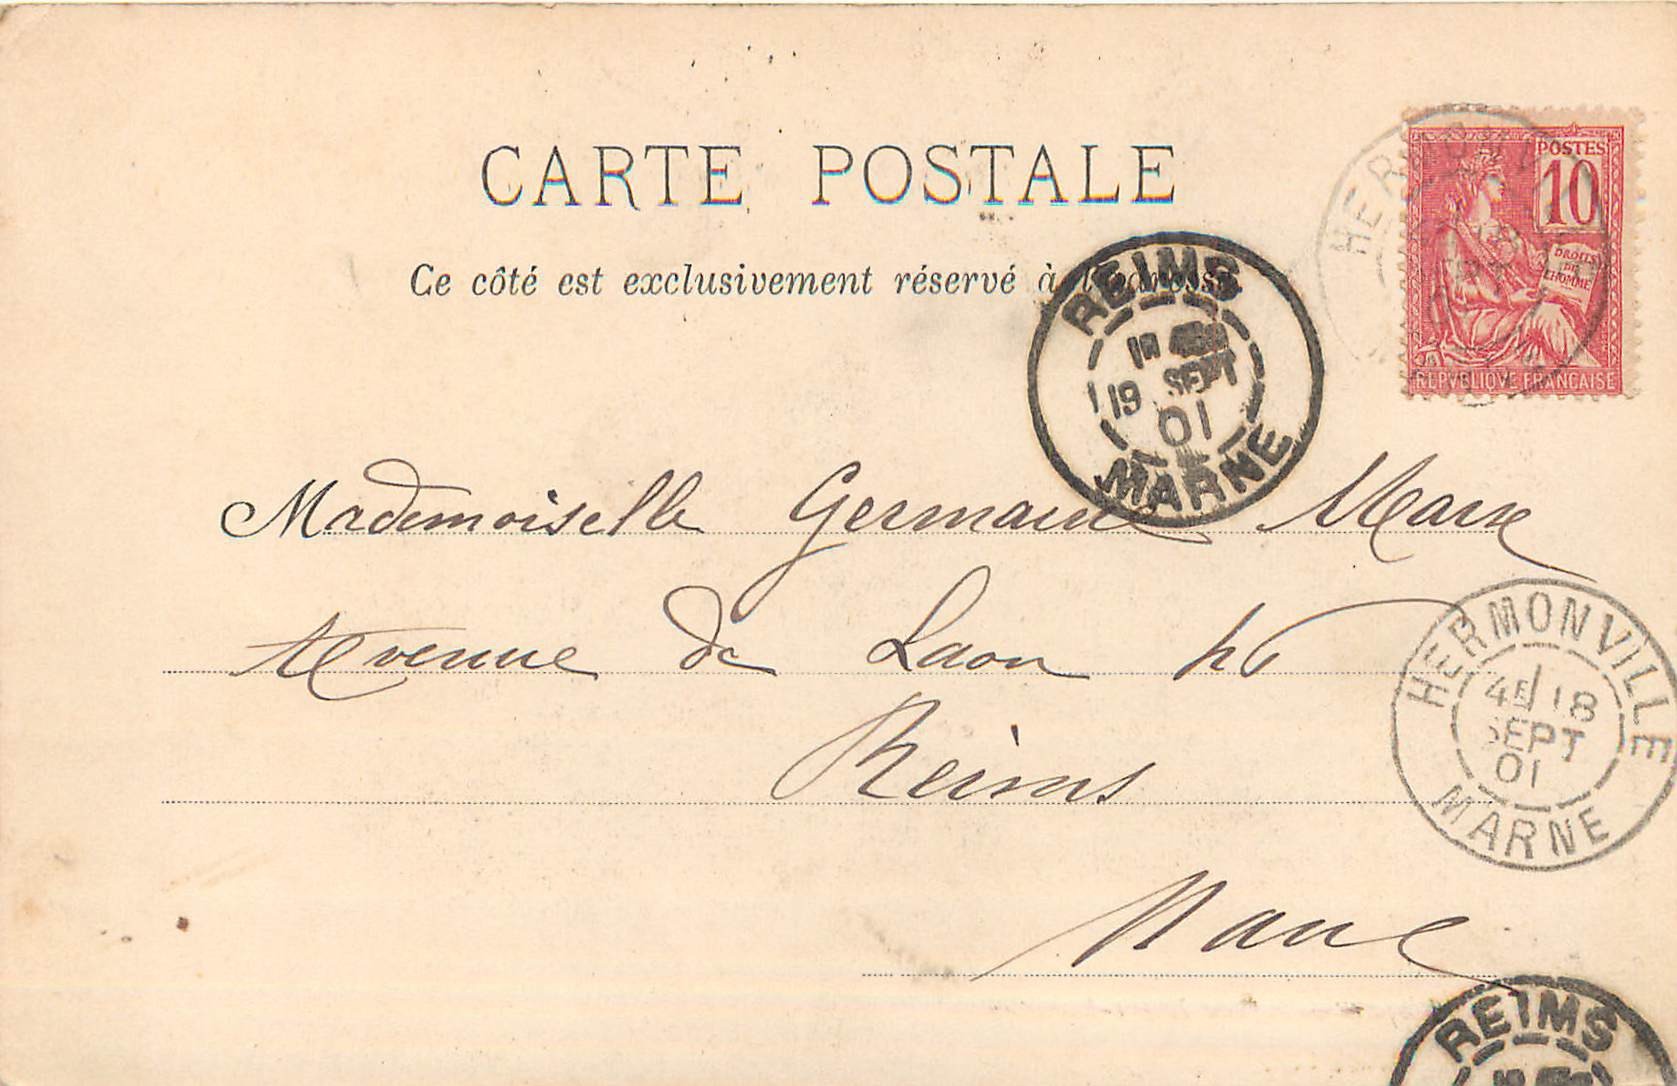 CARTE POSTALE
Ce côté est exclusivement réservé à l'adresse
POSTES
10
DROITS
DE
L'HOMME
REPVBLIQVE FRANÇAISE
REIMS
19 SEPT
01
MARNE
Mademoiselle Germaine
Avenue de Laon
Reims
Marne
HERMONVILLE
4E 18
SEPT
01
MARNE
REIMS